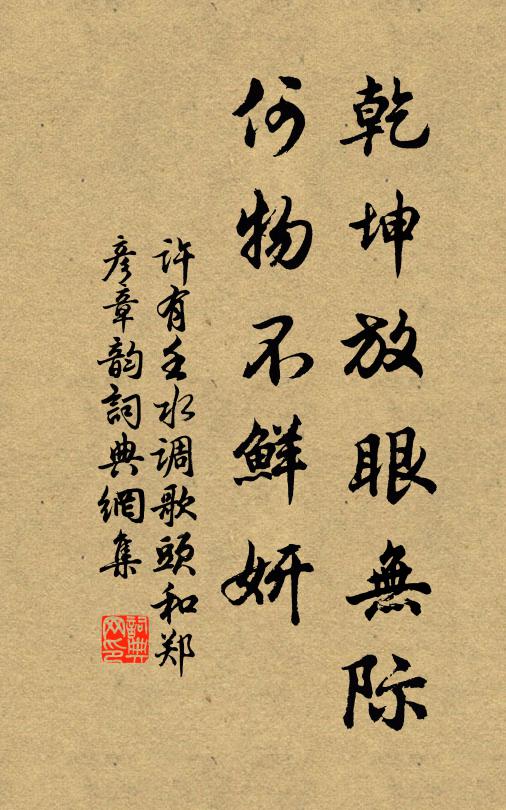 乾坤放眼無际
何物不鮮妍
许有壬水调歌頭和郑
彦章韵詞典網集
詞典网印